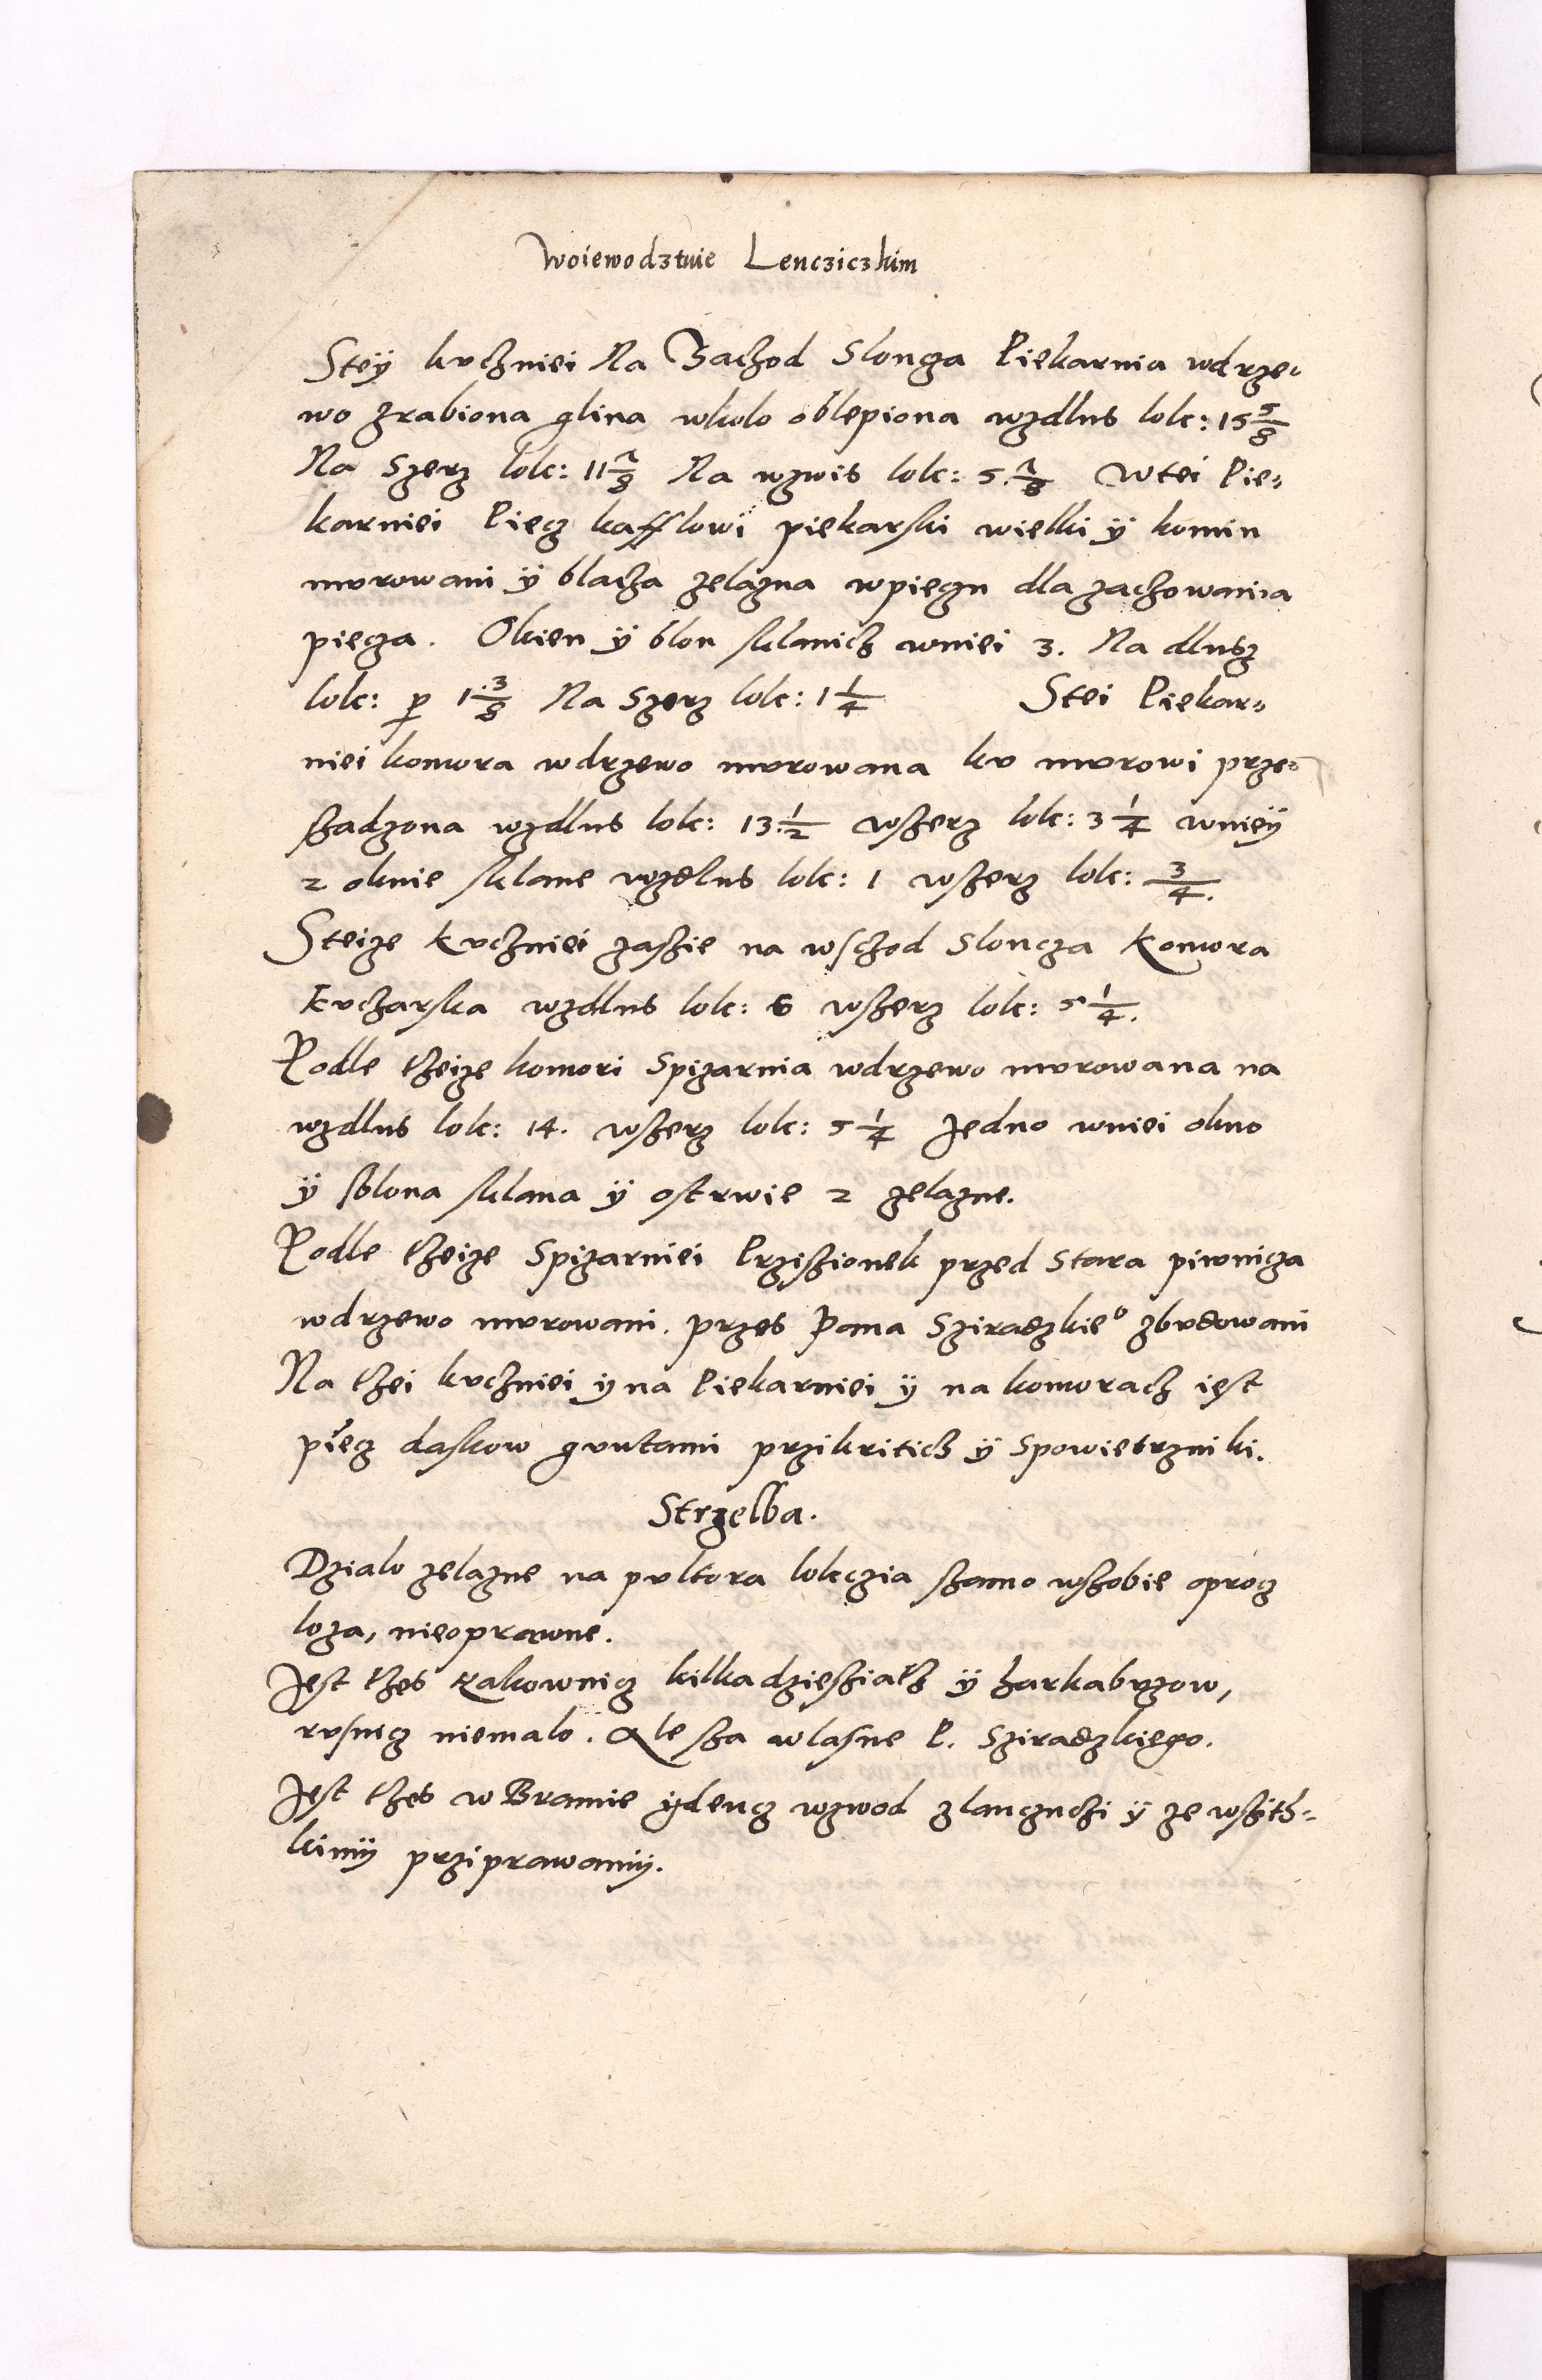 Woiewodztwie Lencziczkim
Stey kuchniei Na Zachod Slonca Piekarnia wdrze-
wo zrabiona glina wkolo oblepiona wzdlus lok: 15 5/8
Na Szerz lok: 11 7/8 Na wzwis lok: 5. 7/8 Wtei Pie-
karniei Piecz kafflowi piekarski wielki ÿ komin
murowani ÿ blacha zelazna wpieczu dla zachowania
piecza. Okien ÿ blon sklanich wniei 3. Na dlusz
lok: per 1 3/8 Na Szerz lok: 1 1/4 Stei Piekar-
niei komora wdrzewo murowana ku murowi prze-
szadzona wzdlus lok: 13 1/2 wszerz lok: 3 1/4 wnieÿ
2 oknie sklane wzdlus lok: 1 wszerz lok: 3/4.
Steize kuchniei zaszie na wschod Sloncza Komora
kucharska wzdlus lok: 6 wszerz lok: 5 1/4.
Podle theize komori Spizarnia wdrzewo murowana na
wzdlus lok: 14. wszerz lok: 5 1/4 Jedno wniei okno
ÿ sblona sklana ÿ ostrwie 2 zelazne.
Podle theize Spizarniei Przisionek przed Stara piwnicza
wdrzewo murowani. przes Pana Sziradzkieo zbudowani
Na thei kuchniei ÿ na Piekarniei ÿ na komorach iest
piecz daskow guntami przikritich ÿ Spowietrzniki.
Strzelba.
Dzialo zelazne na pultora lokczia szamo wszobie oprocz
loza, nieoprawne.
Jest thes Hakownicz kilkadziesziath ÿ harkabuzow,
rusnicz niemalo. Ale sza wlasne P. Sziradzkiego.
Jest thes w Bramie ÿdencz wzwod zlanczuchi ÿ ze wszith-
kimÿ prziprawamÿ.